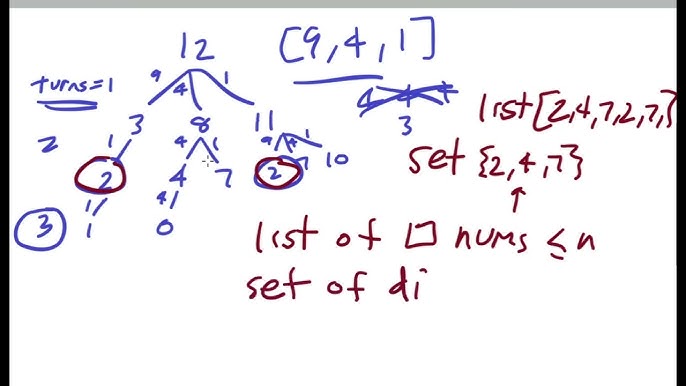 12
[9,4,1]
turns=1
9 4 1
4 4 4
3
3 8 11
list[2,4,7,2,7,]
2
1 4 1 9 4 1
set {2,4,7}
2 4 7 2 7 10
1 4
3 1 0
list of □ nums ≤ n
set of di